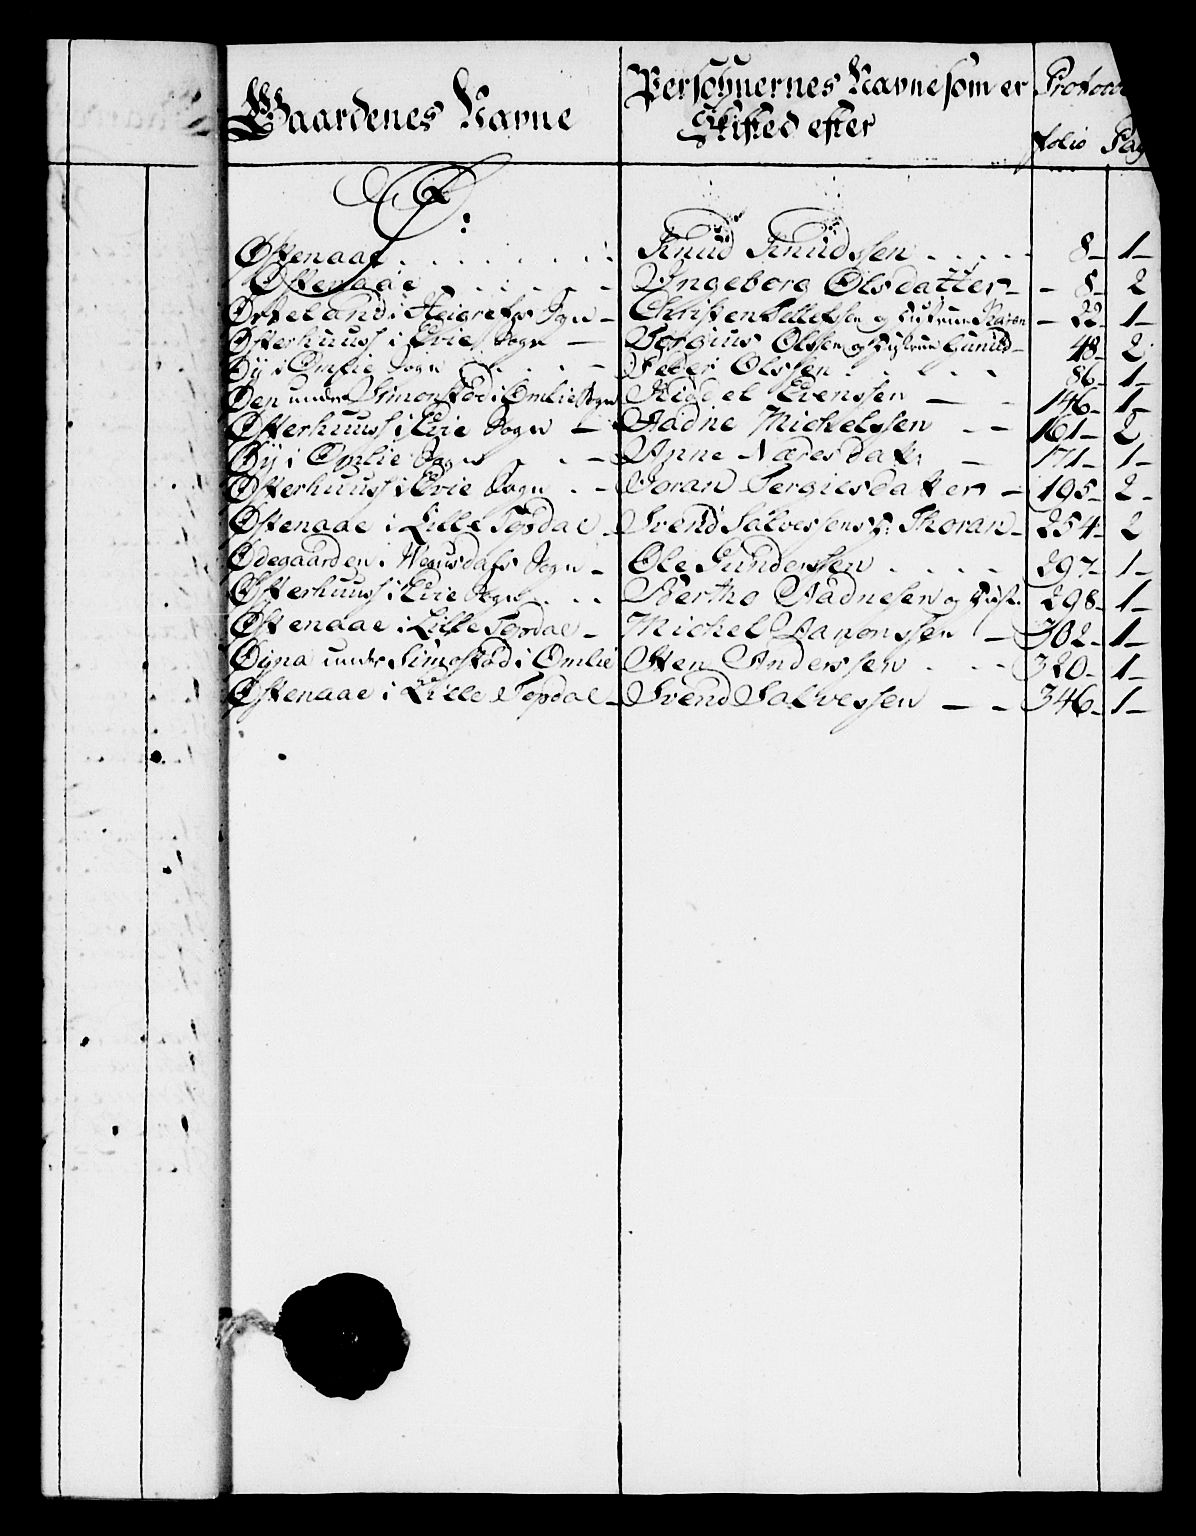 Gaardenes Navne Persohnernes Navne som er Skifted efter Protoco folio Pag
Ø:
Østenaae . . . . . . . Knud Knudssen . . . . . 8 - 1 -
Østenaae . . . . . . Ingeborg Olsdatter - - 8 - 2
Østeland i Heigrefos Sogn - Christen Sellefsen og Hustrue Karen - 22 - 1 -
Østerhuus i Evie Sogn - Torgius Olssen og Hustrue Gunild - 48 - 2
Øy i Omlie Sogn . . . . Peder Olssen . . . . . 86 - 1 -
Øen under Simonstad i Omlie Sogn Kiddel Evenssen - - 146 - 1 -
Østerhuuss i Evie Sogn - Aadne Michelssen - - 161 - 2
Øy i Omlie Sogn . . . - Anne Næresdatr - 171 - 1 -
Østerhuuss i Evie Sogn . - Joran Tergiesdatter - 195 - 2 -
Østenaae i Lille Topdal - Svend Salvessens H: Thoran - 254 - 2
Ødegaarden i Wegusdals Sogn - Ole Gunderssen . . . . 297 - 1 -
Østerhuuss i Evie Sogn . . . Bertho Aadnesen og Hust. 298 - 1 -
Østenaae i Lille Topdal - Michel Aanonssen - 302 - 1 -
Øyna under Simostad i Omlie Sten Anderssen . . - 320 - 1 -
Østenaae i Lille Topdal - Svend Salvessen - - 346 - 1 -